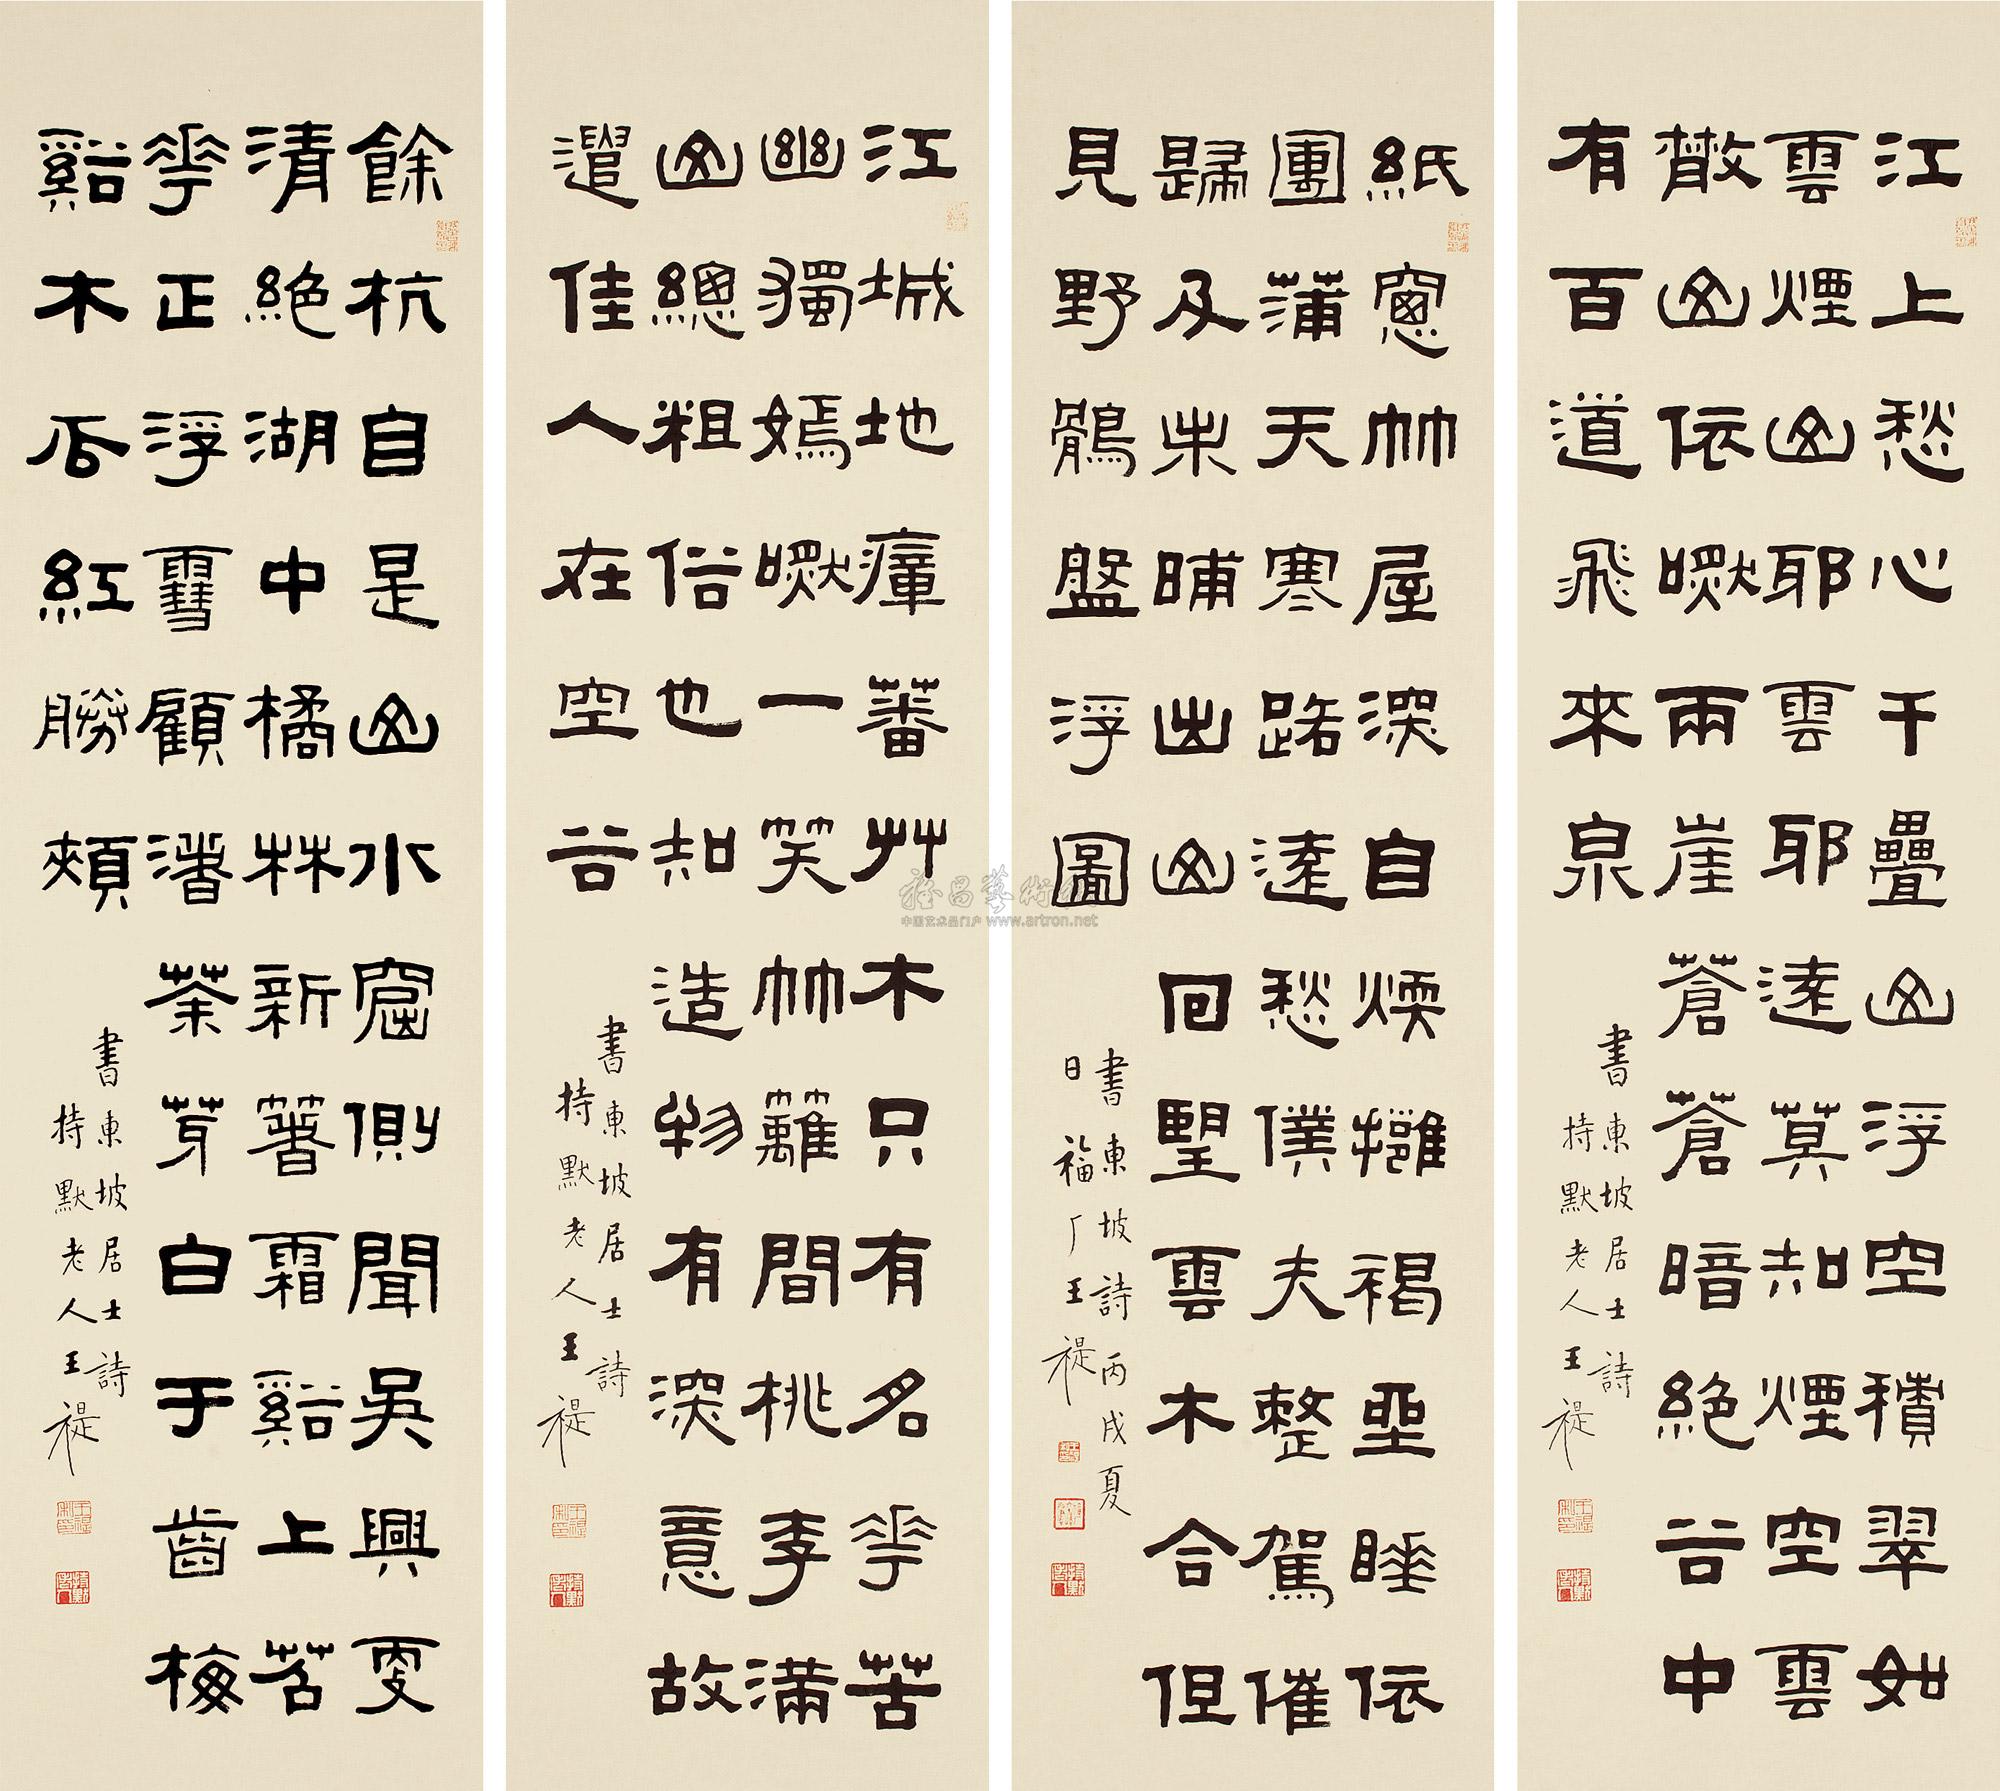 江上愁心千疊山浮空積翠如
雲煙山耶雲耶遠莫知煙空雲
散山依然兩崖蒼蒼暗絕谷中
有百道飛來泉
書東坡居士詩
持默老人王禔
紙窻竹屋深自煖擁褐坐睡依
團蒲天寒路遠愁僕夫整駕催
歸及未晡出山回望雲木合但
見野鶻盤浮圖
書東坡詩丙戌夏
日福厂王禔
江城地瘴蕃艸木只有名花苦
幽獨嫣然一笑竹籬間桃李滿
山總粗俗也知造物有深意故
遣佳人在空谷
書東坡居士詩
持默老人王禔
餘杭自是山水窟側聞吳興更
清絕湖中橘林新著霜谿上苕
花正浮雪顧渚茶芽白于齒梅
谿木瓜紅勝頰
書東坡居士詩
持默老人王禔
雅昌藝術網
中国艺术品门户 www.artron.net